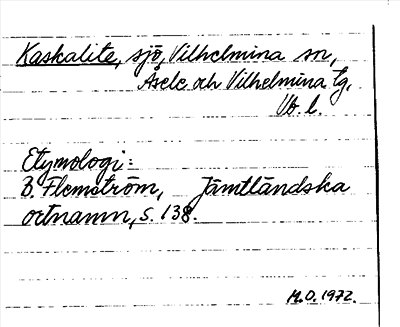 Kaskalite, sjö, Vilhelmina sn,
Åsele och Vilhelmina tg,
Vb. l.
Etymologi:
B. Flemström, Jämtländska
ortnamn, s. 138.
M.O. 1972.